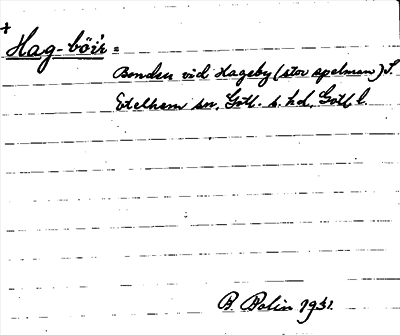 +
Hag-böir =
Bonden vid Hageby (stor spelman) S.
Etelhem sn, Gotl. s. hd, Gotl l.
B Bolin 1931.